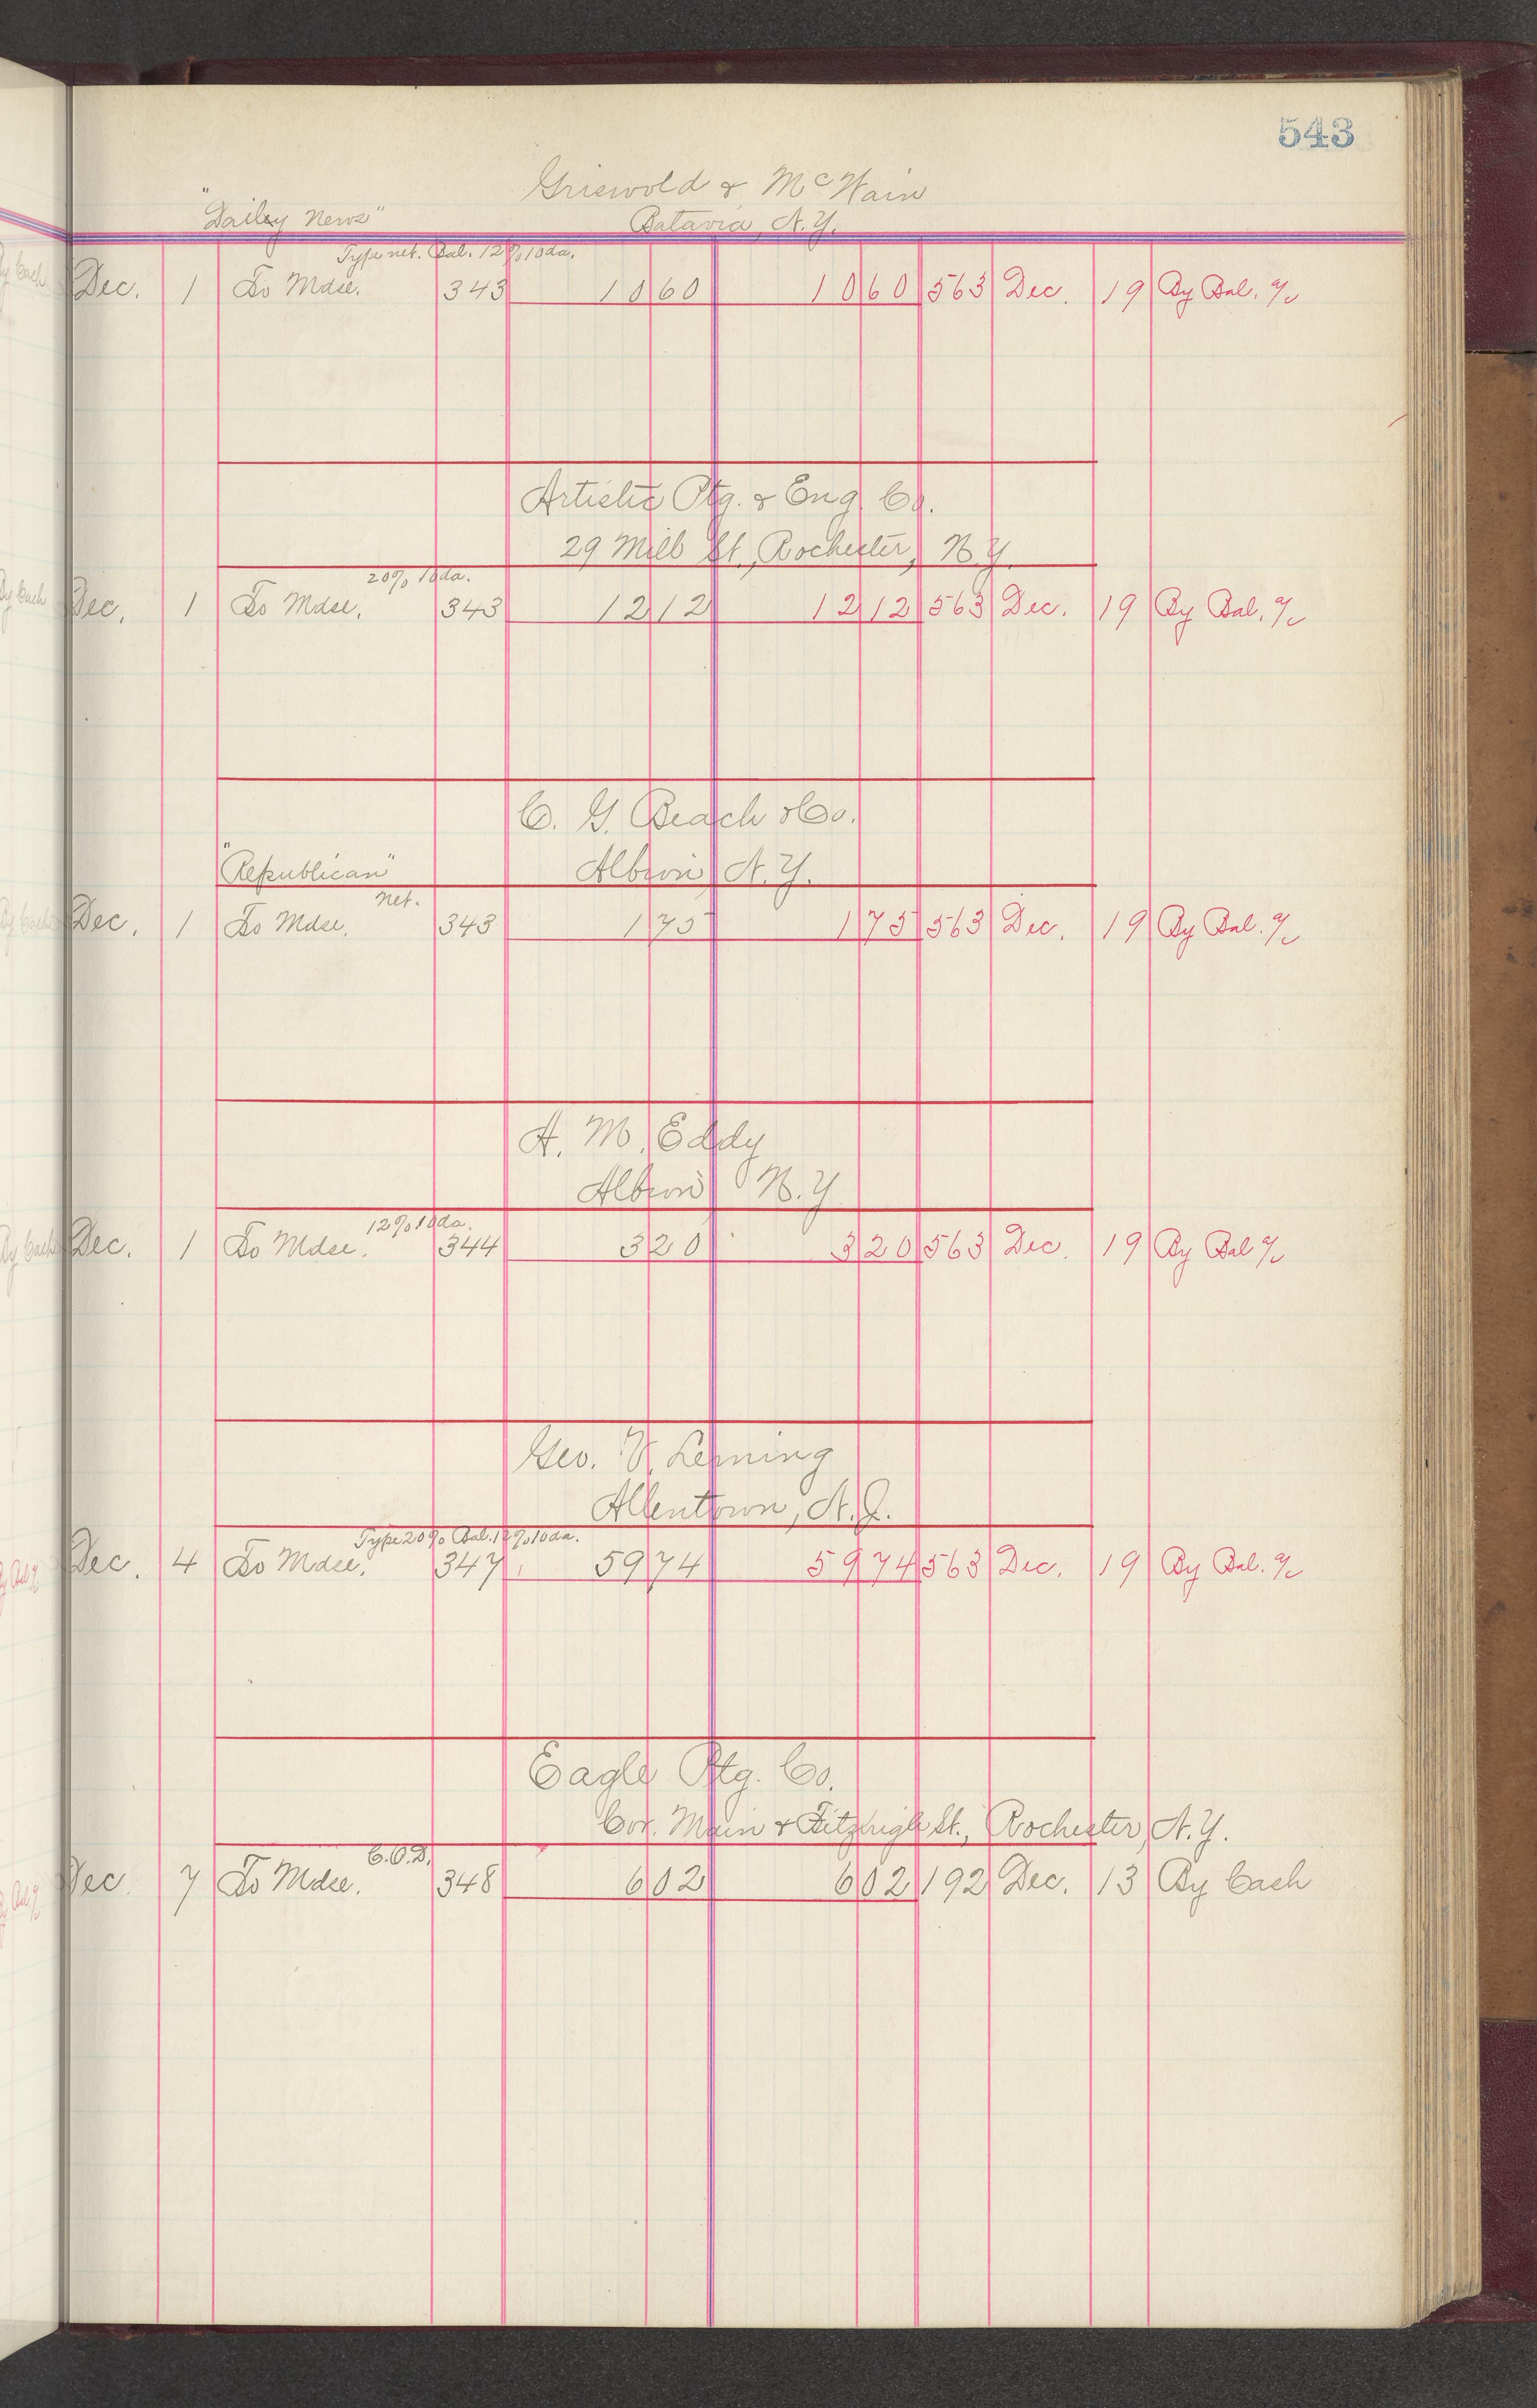 543
Griswold & McWain
"Dailey News" Batavia, N.Y.
Type net. Bal. 12% 10da.
Dec. 1 To Mdse. 343 10 60 10 60 563 Dec. 19 By Bal. a/c
Artistic Ptg. & Eng. Co.
29 Mill St., Rochester, N.Y.
20% 10da.
Dec. 1 To Mdse. 343 12 12 12 12 563 Dec. 19 By Bal. a/c
C. G. Beach & Co.
"Republican" Albion, N.Y.
net.
Dec. 1 To Mdse. 343 1 75 1 75 563 Dec. 19 By Bal. a/c
A. M. Eddy
Albion N.Y.
12% 10da.
Dec. 1 To Mdse. 344 3 20 3 20 563 Dec. 19 By Bal a/c
Geo. V. Leming
Allentown, N.J.
Type 20% Bal. 12% 10da.
Dec. 4 To Mdse. 347 59 74 59 74 563 Dec. 19 By Bal. a/c
Eagle Ptg. Co.
Cor. Main & Fitzhugh St., Rochester, N.Y.
C.O.D.
Dec. 7 To Mdse. 348 6 02 6 02 192 Dec. 13 By Cash